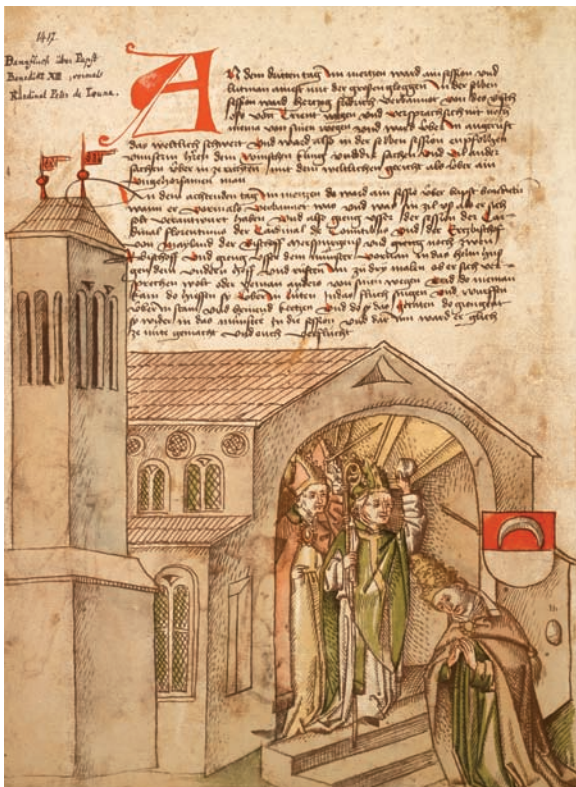 1417.
Bannfluch über Papst
Benedikt XIII, vormals
Kardinal Peter de Luna.
An dem dritten tag Im mertzen ward ain session vnd
lutman ainest mit der grossen gloggen In der selben
session ward hertzog fridrich verbannet von des
von Trient wegen vnd versprach sich noch
nieman von sinen wegen vnd ward über In angerüft
das weltlich schwert vnd ward also in der selben session enpfolhen
vnserm herren dem künig vnd die sachen vnd vil ander
sachen über In ze richten mit dem weltlichen gericht als über ain
vngehorsamen man
An dem achtenden tag Im mertzen do ward ain session über bapst benedicten
wann er vormals verbannet was vnd was Im zil vff als er sich
solt verantwurt haben vnd also gieng vsser der session der Car-
dinal florentinus der Cardinal de Comitibus vnd der Ertzbischoff
von Mayland der Bischoff vnd gieng noch zwen
Bischoff vnd gieng vsser dem münster
gen dem vndern hoff vnd rüften Im zu dry malen ob er sich ver-
sprechen wolt oder yeman anders von sinen wegen vnd do nieman
kam do hiessen sy über In lüten In das fluch singen vnd wurffen
über In stain vnd brinnend kertzen vnd do sy das do giengen
sy wider in das münster In die session vnd dar Inn ward er glich
ze nüte gemacht vnd ouch verflucht